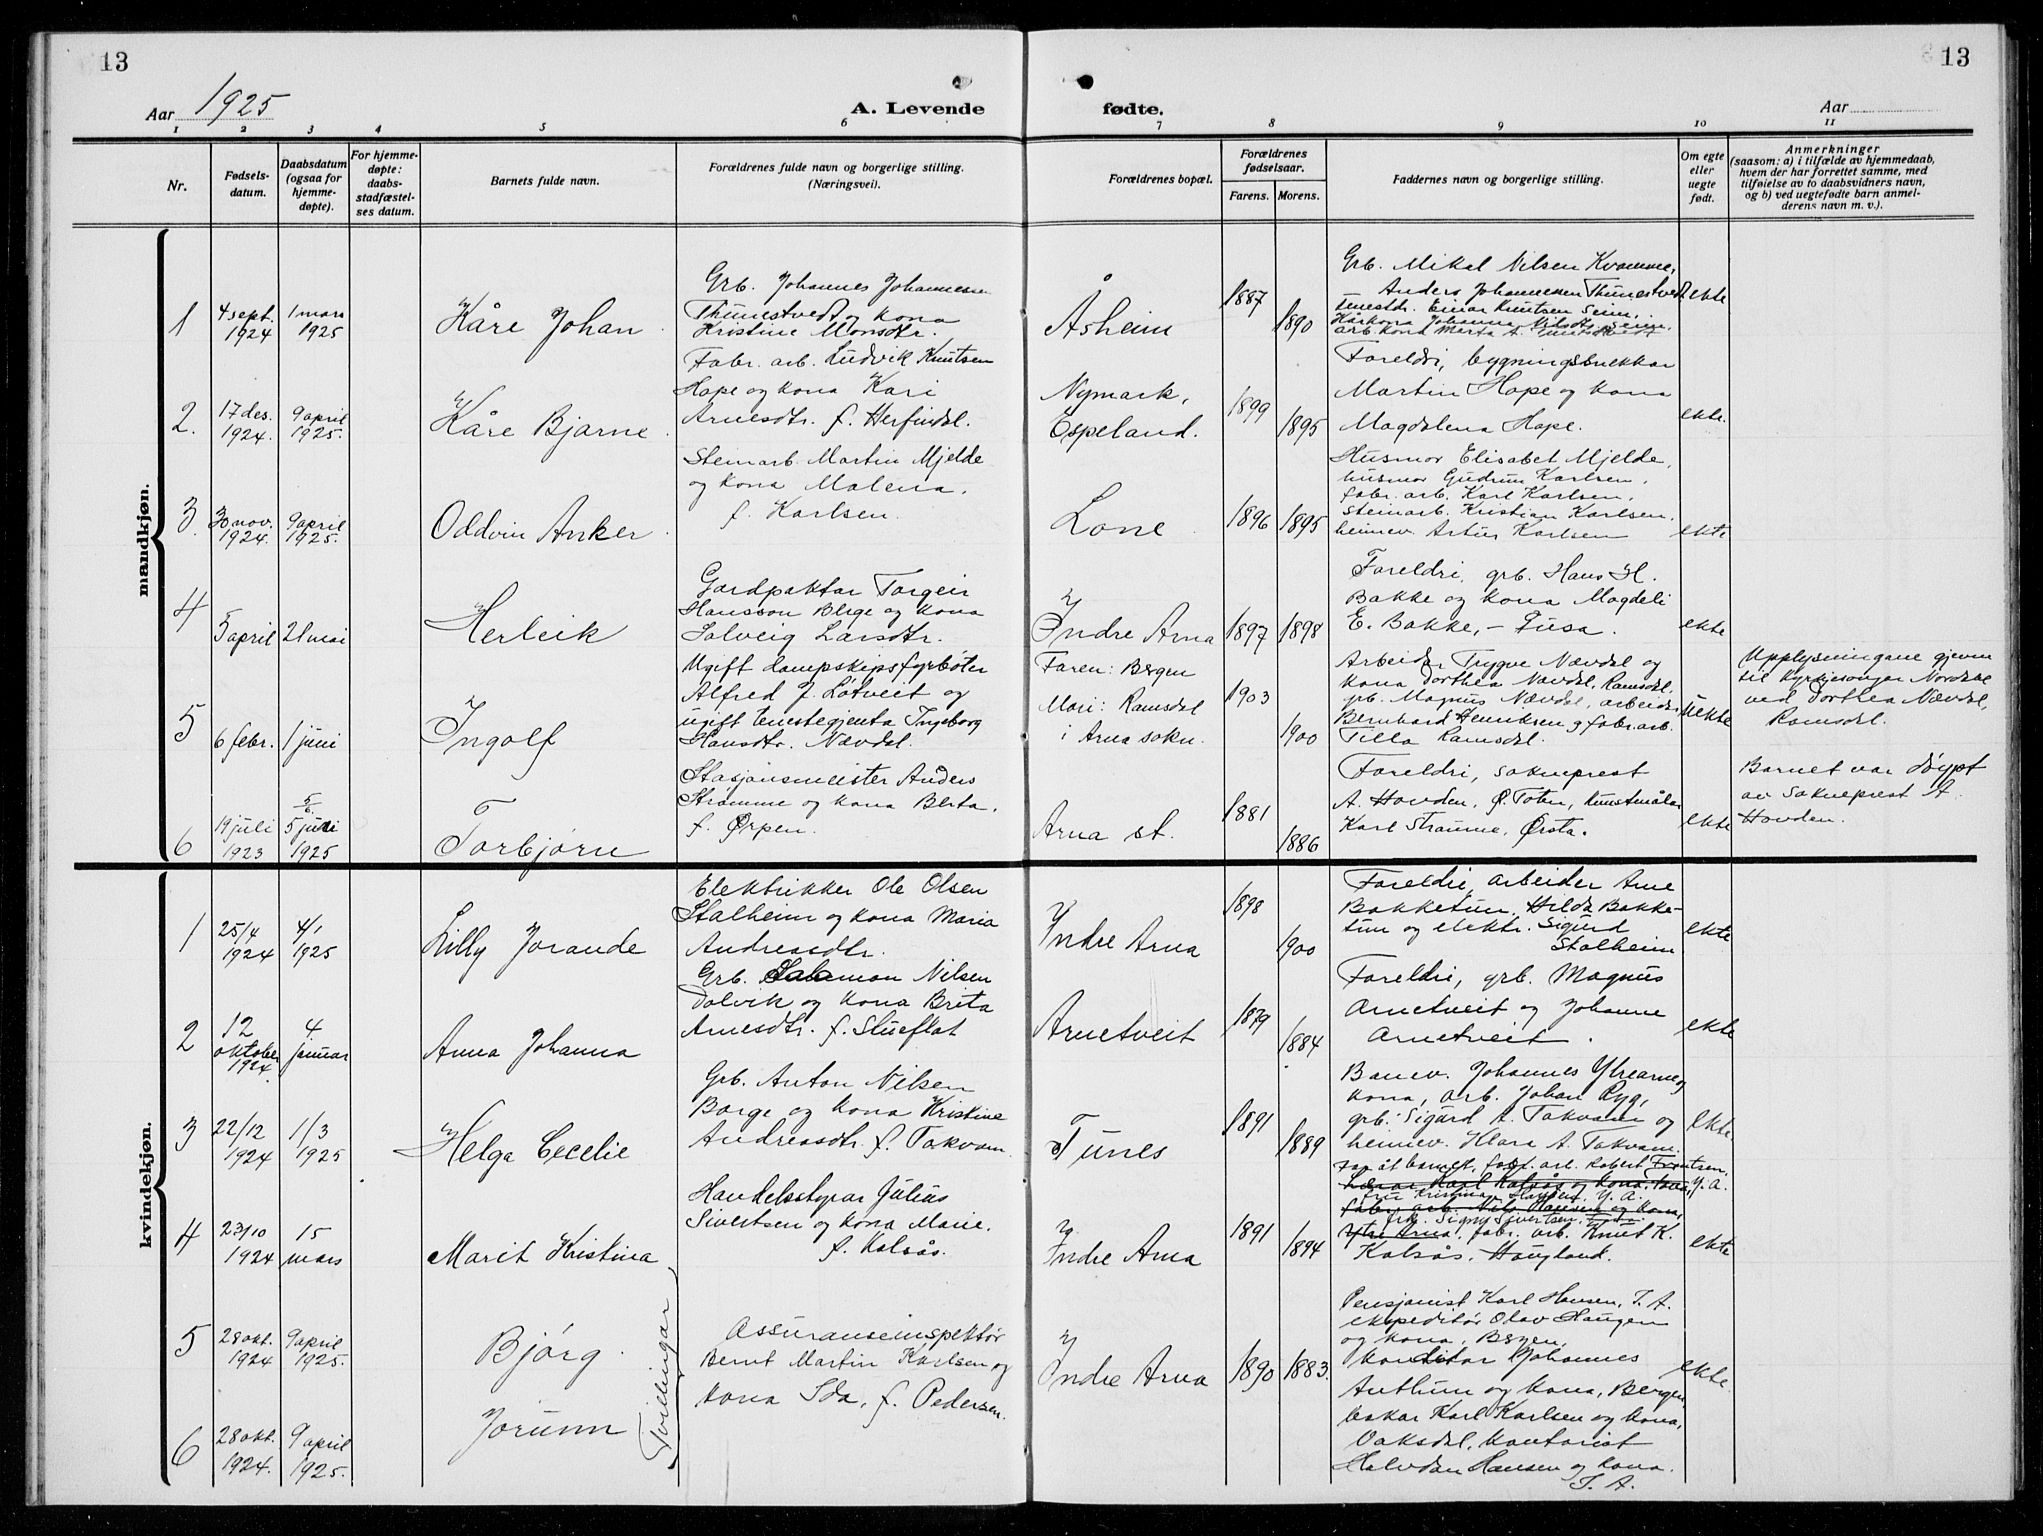 13
13
Aar 1925
A. Levende
fødte.
Aar
1 2 3 4 5 6 7 8 9 10 11
Nr.
Fødsels-
datum.
Daabsdatum
(ogsaa for
hjemme-
døpte).
For hjemme-
døpte:
daabs-
stadfæstel-
ses datum.
Barnets fulde navn.
Forældrenes fulde navn og borgerlige stilling.
(Næringsvei).
Forældrenes bopæl.
Forældrenes
fødselsaar.
Farens. Morens.
Faddernes navn og borgerlige stilling.
Om egte
eller
uegte
født.
Anmerkninger
(saasom: a) i tilfælde av hjemmedaab,
hvem der har forrettet samme, med
tilføielse av to daabsvidners navn,
og b) ved uegtefødte barn anmel-
derens navn m. v.).
mandkjøn.
1
4 sept.
1924
1 mars
1925
Kåre Johan
Grb. Johannes Johannesen
Thunestvedt og kona
Kristine Monsdtr.
Åsheim
1887
1890
Grb. Mikal Nilsen Kvamme,
Anders Johannesen Thunestvedt
tenestdr. Einar Knutsen Seim,
Kårkona Johanna Nilsdtr. Seim,
arb. kona Marta A.
ekte
2.
17 des.
1924.
9 april
1925.
Kåre Bjarne
Fabr. arb. Ludvik Knutsen
Hope og kona Kari
Arnesdtr. f. Herfindal.
Nymark,
Espeland.
1899
1895
Foreldri, bygningssnekkar
Martin Hope og kona
Magdalena Hope.
ekte.
3.
30 nov.
1924.
9 april
1925.
Oddvin Anker
Steinarb. Martin Mjelde
og kona Malena,
f. Karlsen.
Lone
1896
1895
Husmor Elisabet Mjelde,
husmor Gudrun Karlsen,
fabr. arb. Karl Karlsen,
steinarb. Kristian Karlsen,
heimev. Artur Karlsen
ekte
4
5 april
21 mai
Herleik
Gardpaktar Torgeir
Hansson Berge og kona
Solveig Larsdtr.
Indre Arna
1897
1898
Foreldri, grb. Hans H.
Bakke og kona Magdeli
E. Bakke, - Fusa.
ekte
5
6 febr.
1 juni
Ingolf
Ugift dampskipsfyrbøter
Alfred J. Løtveit og
ugift tenestegjenta Ingeborg
Hansdtr. Nævdal.
Faren: Bergen
Mori: Ramsdal
i Arna sokn.
1903
1900
Arbeider Trygve Nævdal og
kona Dorthea Nævdal, Ramsdal,
grb. Magnus Nævdal, arbeider
Bernhard Henriksen og fabr. arb.
Tilla Ramsdal.
uekte
Upplysningane gjevne
til kyrkjesongar Nordal
ved Dorthea Nævdal,
Ramsdal.
6
19 juli
1923
5/6
5 juni
1925
Torbjørn
Stasjonsmeister Anders
Straumme og kona Berta,
f. Ørpen.
Arna st.
1881
1886
Foreldri, sokneprest
A. Hovden, Ø. Toten, kunstmålar
Karl Straume, Ørsta.
ekte
Barnet var døypt
av sokneprest A.
Hovden.
kvindekjøn.
1
25/4
1924
4/1
1925
Lilly Jorande
Elektrikker Ole Olsen
Stalheim og kona Maria
Andreasdtr.
Indre Arna
1898
1900
Foreldri, arbeider Arne
Bakketun, Hilda Bakke-
tun og elektr. Sigurd
Stalheim
ekte
2
12
oktober
1924.
4
januar
Anna Johanna
Grb. Salamon Nilsen
Dalvik og kona Brita
Arnesdtr. f. Stueflot
Arnetveit
1879
1884
Foreldri, grb. Magnus
Arnetveit og Johanne
Arnetveit.
ekte
3
22/12
1924
1/3
1925
Helga Cecelie
Grb. Anton Nilsen
Borge og kona Kristine
Andreasdtr. f. Takvam.
Tunes
1891
1889
Banev. Johannes Ytrearne og
kona, arb. Johan Ryg,
grb. Sigurd A. Takvam og
heimev. Klara A. Takvam.
ekte
4
23/10
1924
15
mars
Marit Kristina
Handelsstyrar Julius
Sivertsen og kona Marie,
f. Kalsås.
Indre Arna
1891
1894
far åt barnet, fabr. arb. Robert Frantsen,
Lærar Karl Kalsås og kona, Y. A.
fru Kristina Y. A.
fabr. arb. Nils og kona,
frk. Signy Sivertsen,
Ytre Arna, fabr. arb. Knut K.
Kalsås, Haugland.
ekte
5
28 okt.
1924
9 april
1925.
Bjørg.
Assuranseinspektør
Bernt Martin Karlsen og
kona Ida, f. Pedersen.
Indre Arna
1890
1883.
Pensjonist Karl Hansen, I. A.
ekspeditør Olav Haugen
og kona, Bergen,
konditor Johannes
Anthun og kona, Bergen,
bakar Karl Karlsen og kona,
Vaksdal, kontorist
Halvdan Hansen og kona.
I. A.
ekte.
6
28 okt.
1924.
9 april
1925.
Jorunn
Tvillingar